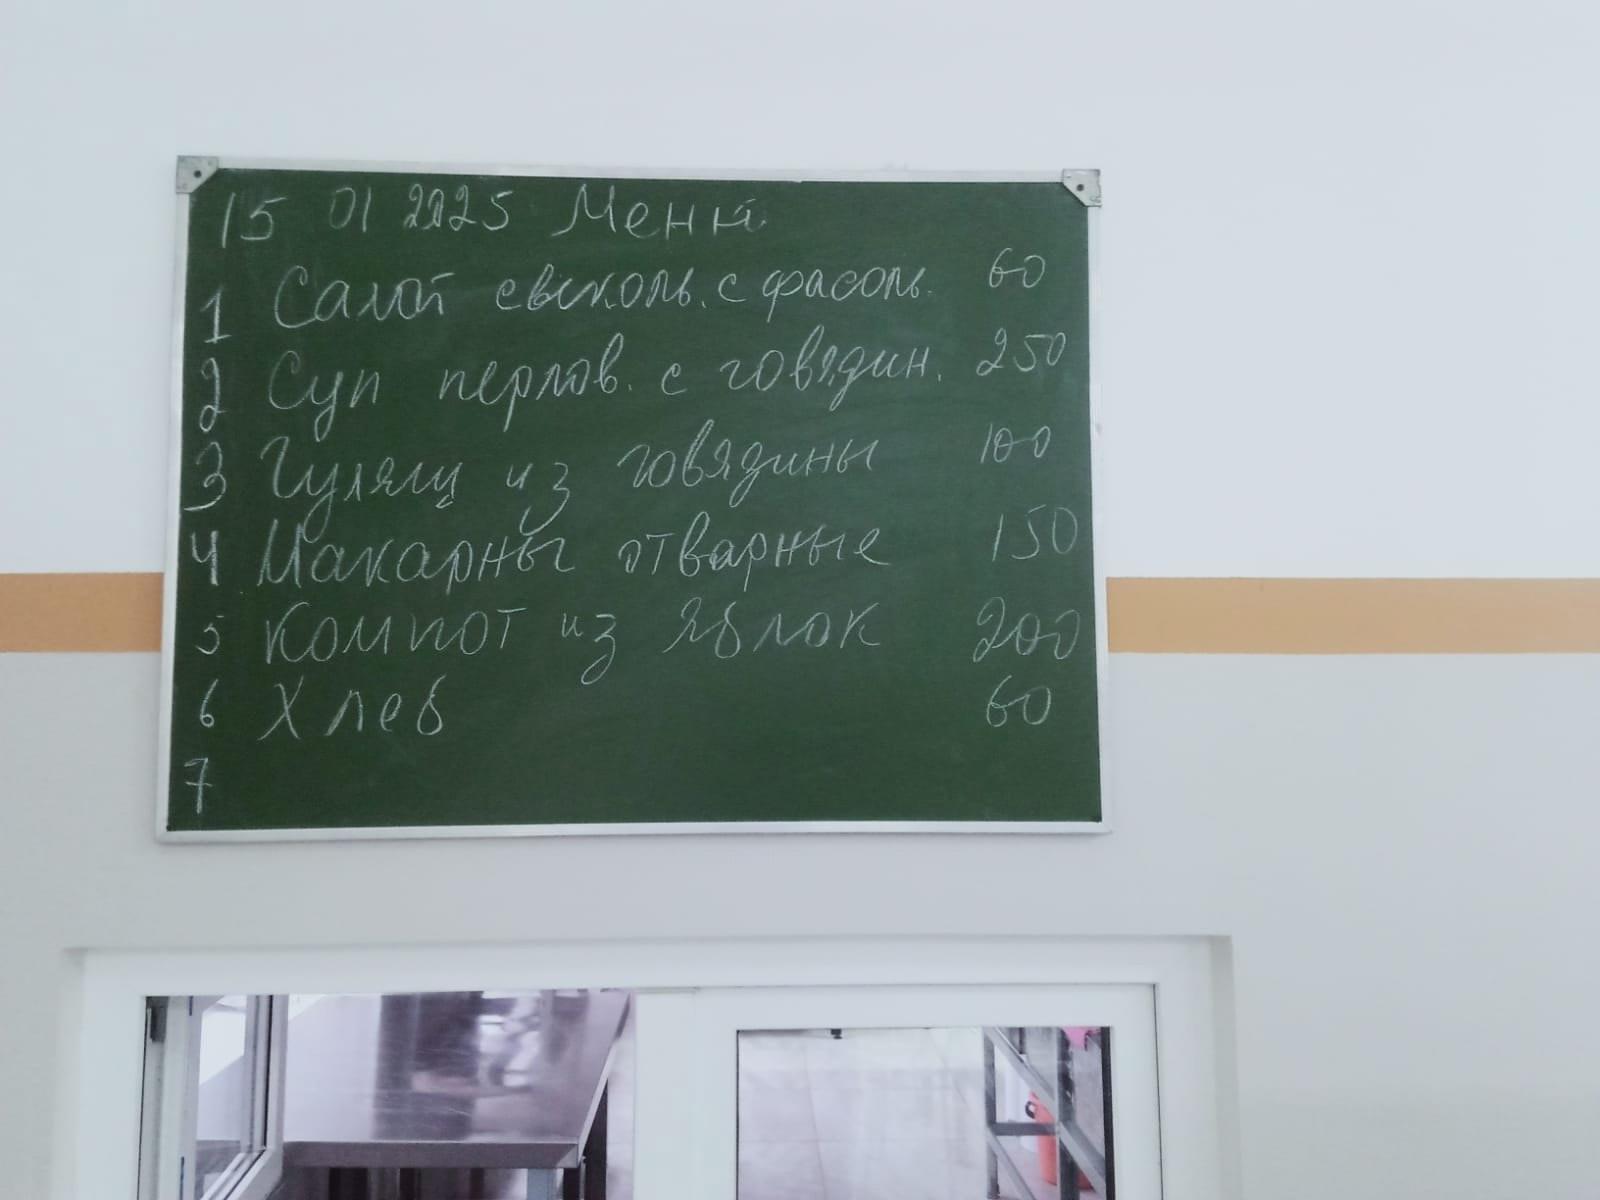 15 01 2025 Меню
1 Салат свекольн. с фасоль. 60
2 Суп перлов. с говядин. 250
3 Гуляш из говядины 100
4 Макарны отварные 150
5 Компот из яблок 200
6 Хлеб 60
7